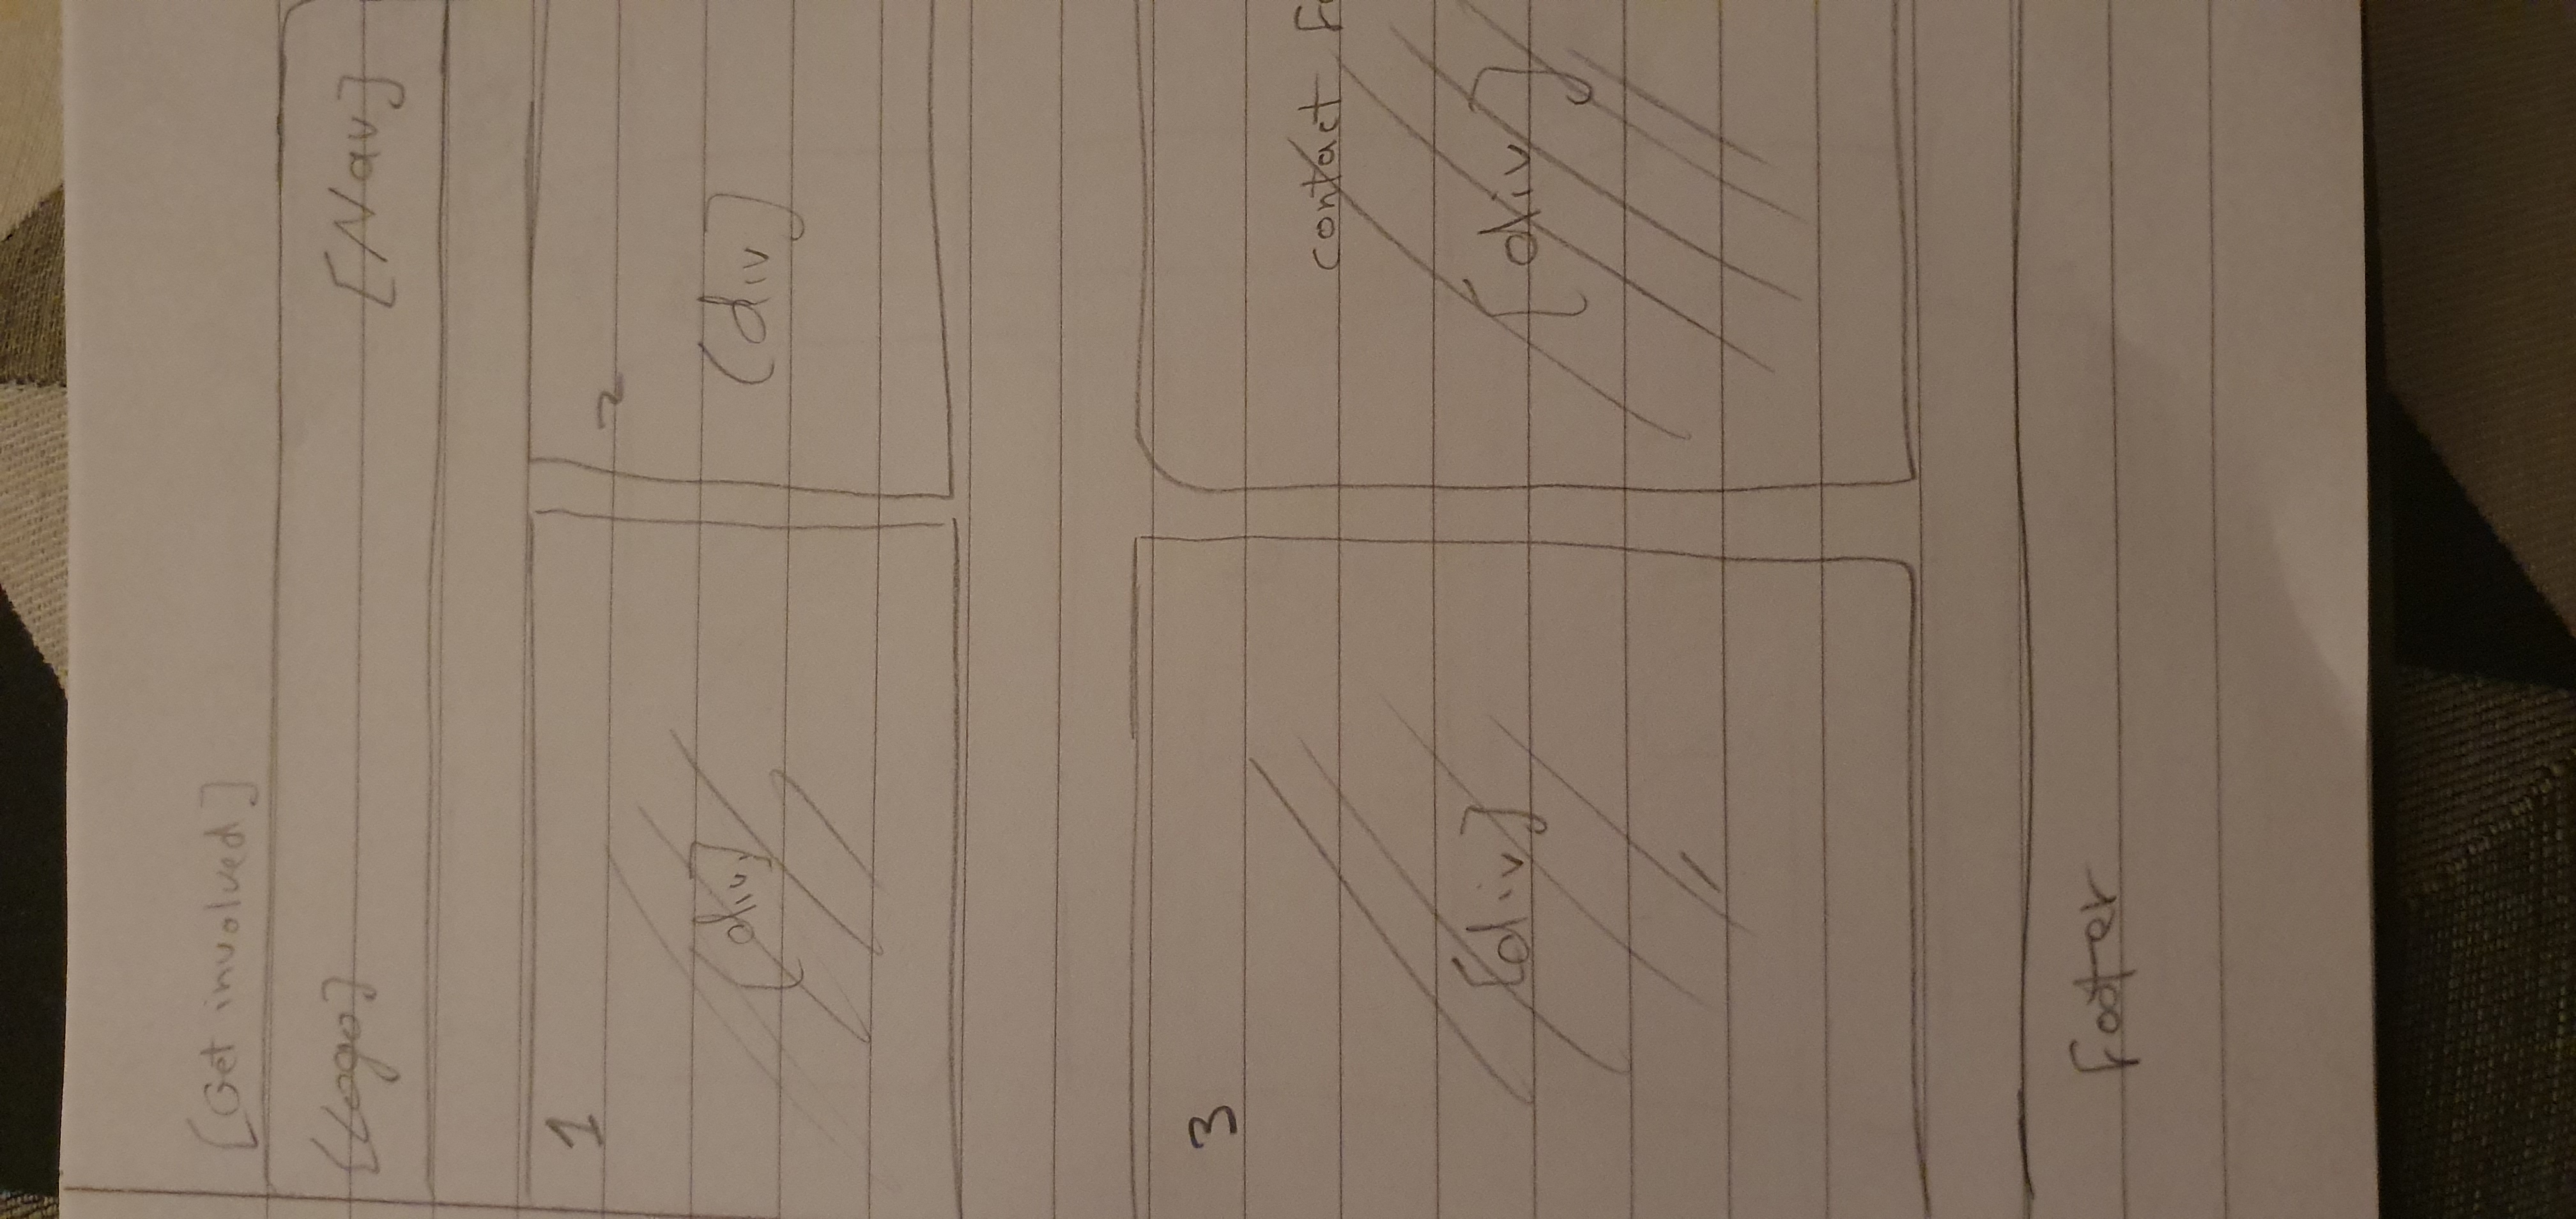 [Get involved]
[Logo] [Nav]
1
2
[div]
(div]
3
contact
[div]
[div]
Footer